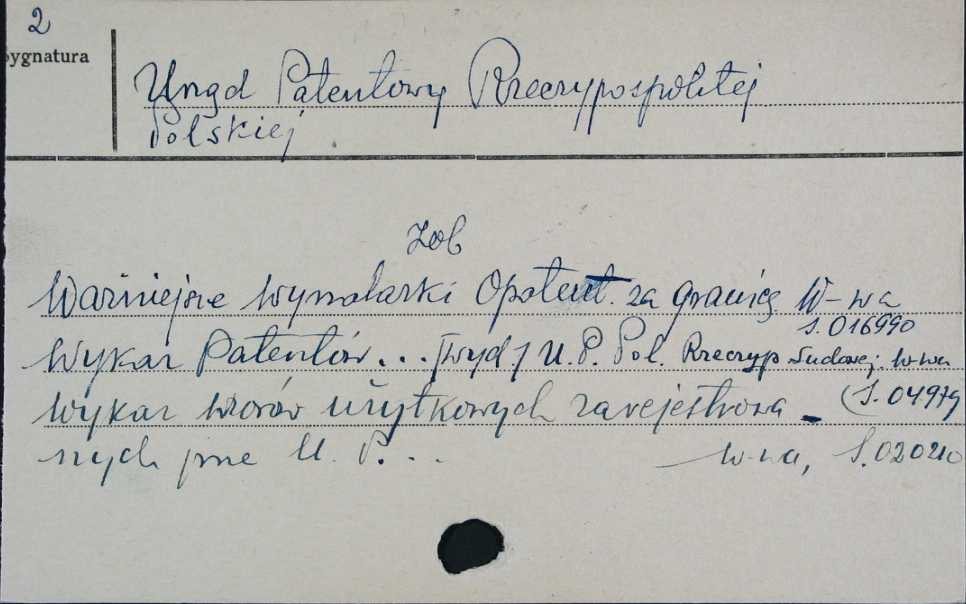 2
Sygnatura
Urząd Patentowy Rzeczypospolitej
Polskiej
Zob
Ważniejsze wynalazki Opatent. za granicą W-wa
S. 016990
Wykaz Patentów... [wyd.] U. P. Pol. Rzeczyp Ludowej. W-wa
(S. 04979
Wykaz wzorów użytkowych zarejestrowa-
nych prze U. P... W-wa, S.020210